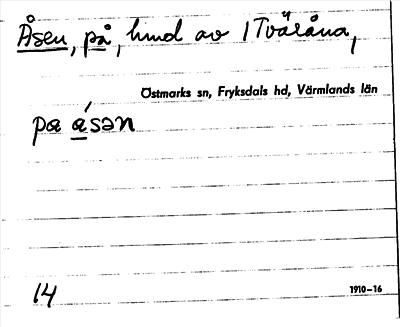 Åsen, på, hmd av 1 Tväråna,
Östmarks sn, Fryksdals hd, Värmlands län
på åsən
14
1910–16